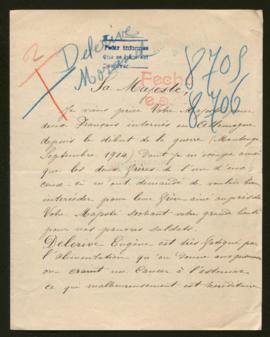 2
Delerive
8705
8706
Sa Majesté,
Je viens prier Votre Majesté
deux Français internés en Allemagne
depuis le début de la guerre (Maubeuge
Septembre 1914) Dont je m'occupe ainsi
que les deux frères de l'un d'eux,
m'ont demandé de vouloir bien
intercéder pour leur frère auprès de
Votre Majesté sachant votre grande bonté
pour nos pauvres soldats.
Delerive Eugène est très fatigué par
l'alimentation qu'on donne aux
on craint un Cancer à l'estomac
ce qui malheureusement est héréditaire